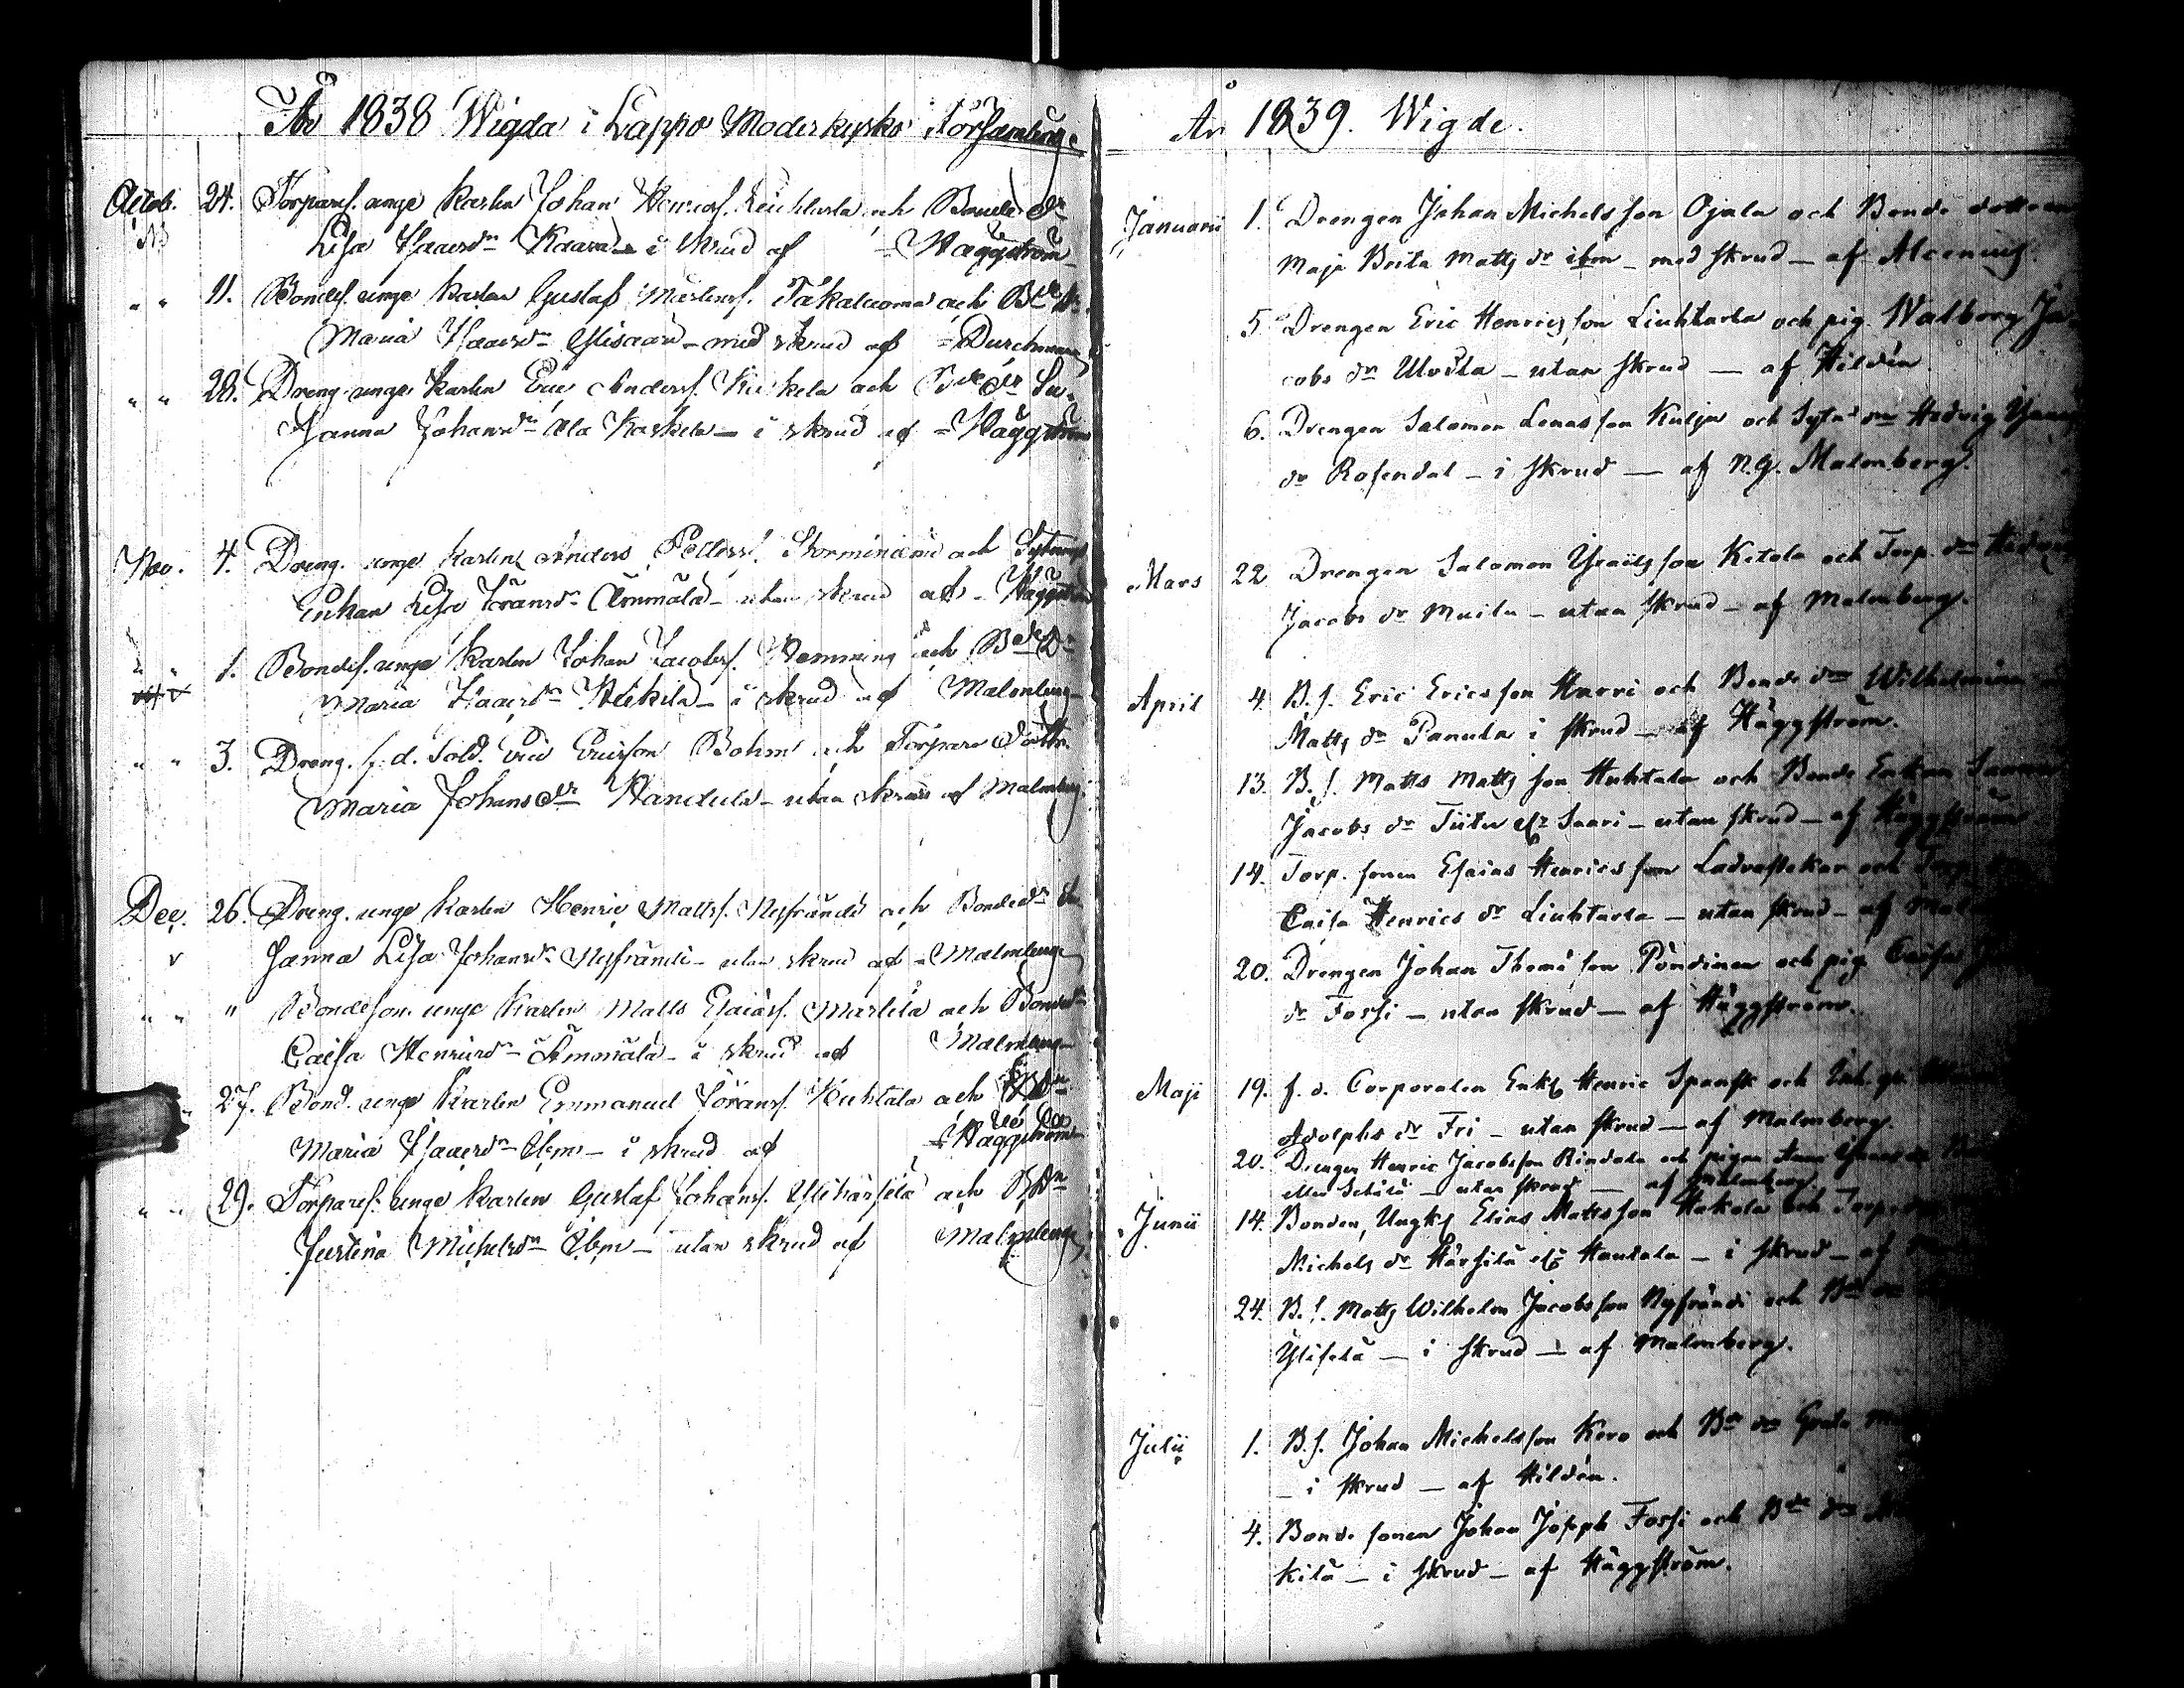 År 1838 Wigda i Lappo Moderkyrko Församling.
Octob. 24. Torpares. unge karlen Johan Henricss. Liuhtarla och Bonde dr
Lisa Isaacsdr Kaara i skrud af Häggström
" " 11. Bondes. unge karlen Gustaf Mårtenss. Takaluoma och Bde dr
Maria Isaacsdr Ylisaari - med skrud af Durchman
" " 28. Dreng. unge karlen Eric Anderss. Keskela och Bde dr Su-
sanna Johansdr Ala Kaskela - i skrud af Häggström
Nov. 4. Dreng. unge karlen Anders Petterss. Storminiemi och Sytnings
Enkan Lisa Göransdr Ämmälä - utan skrud af Häggström
" " 1. Bondes. unge karlen Johan Jacobss. Hemming och Bde Dr
Maria Isaacsdr Heikila - i skrud af Malmberg
" " 3. Dreng. f. d. Sold. Eric Ericsson Bohm och Torpare dottr.
Maria Johans dr Handula - utan skrud af Malmberg
Dec. 26. Dreng. unge karlen Henric Matts. Nyfrändi och Bonde dr Su
sanna Lisa Johansdr Nyfrändi - utan skrud af Malmberg
" " " Bondeson. unge karlen Matts Esaiass. Martila och Bonde dr
Caisa Henricsdr Ämmälä - i skrud af Malmberg
27. Bond. unge karlen Emmanuel Göranss. Huhtala och B. dr
Maria Isaacsdr ibm - i skrud af Häggström
" " 29. Torpares. unge karlen Gustaf Johanss. Ylihärsilä och B. dr
Justina Michelsdr ibm - utan skrud af Malmberg
År 1839. Wigde.
Januarii 1. Drengen Johan Michelsson Ojala och Bonde dotteren
Maja Brita Matts dr ibm - med skrud - af Alcenius.
5. Drengen Eric Henricsson Liuhtarla och pig. Walborg Ja-
cobs dr Uloila - utan skrud - af Hildén
6. Drengen Salomon Lenasson Kulja och Sytn dr Hedvig
dr Rosendal - i skrud - af N.G. Malmberg.
Mars 22 Drengen Salomon Israelsson Ketola och Torp. dr Hedvig
Jacobs dr Muilu - utan skrud - af Malmberg.
April 4. B.s. Eric Ericsson Harri och Bonde dr Wilhelmina
Matts dr Panula i skrud - af Häggström.
13. B.s. Matts Mattsson Huhtala och Bonde Enkan
Jacobs dr Tiitu elr Saari - utan skrud - af Häggström
14. Torp. sonen Esaias Henricsson Ladvastekar och Torp
Caisa Henrics dr Liuhtarla - utan skrud - af Malm
20. Drengen Johan Thomæson Pöndinen och pig. Caisa
dr Fossi - utan skrud - af Häggström.
Maji 19. f. d. Corporalen Enkl Henric Spansk och Inh.
Adolphs dr Fri - utan skrud - af Malmberg.
20. Drengen Henric Jacobsson Rindala och pigan Anna
eller Setälä - utan skrud - af Malmberg
Junii 14. Bonden, Ungkl Elias Mattsson Hakola och Torpe
Michels dr Härsilä elr Haudala - i skrud - af
24. B.s. Matts Wilhelm Jacobsson Nyfrändi och Bde dr
Yliselä - i skrud - af Malmberg.
Julii 1. B.s. Johan Michelsson Kero och Bde dr Greta
- i skrud - af Hildén.
4. Bonde sonen Johan Joseph Fossi och Bde dr
kilä - i skrud - af Häggström.